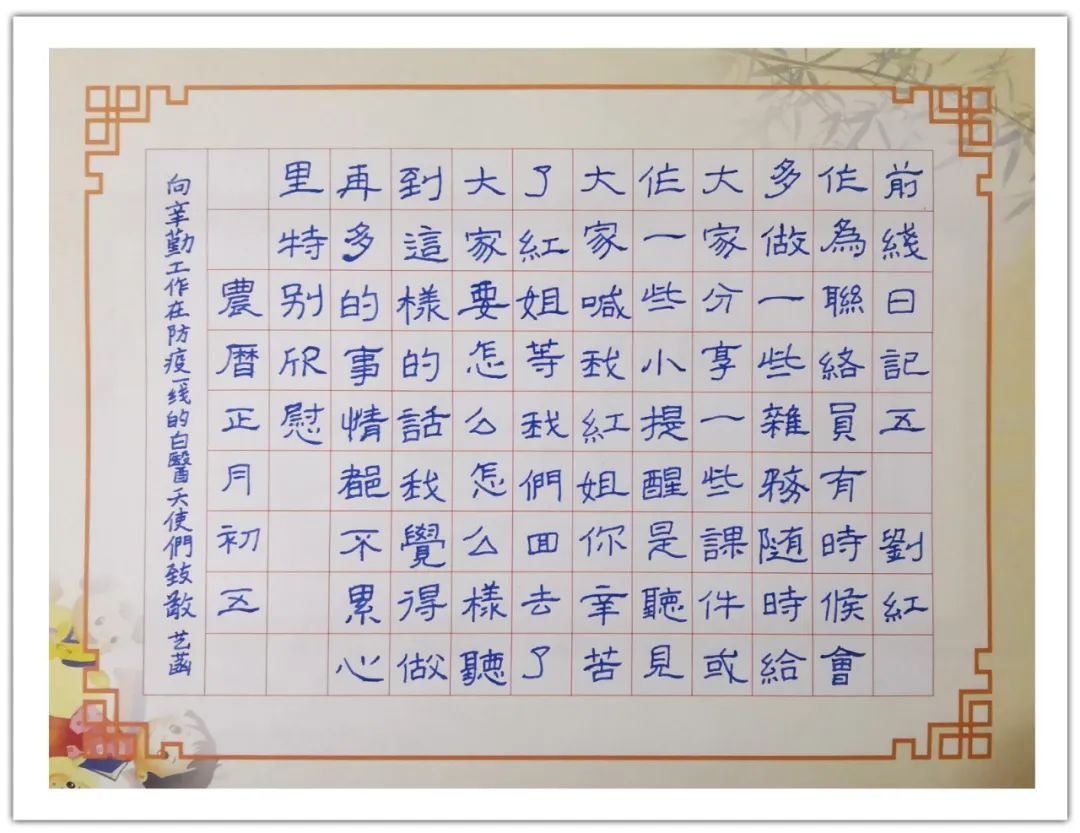 前綫日記五 劉紅
作為聯絡員有時候會
多做一些雜務隨時給
大家分享一些課件或
作一些小提醒是聽見
大家喊我紅姐你辛苦
了紅姐等我們回去了
大家要怎么怎么樣聽
到這樣的話我覺得做
再多的事情都不累心
里特别欣慰
農曆正月初五
向辛勤工作在防疫一线的白醫天使們致敬 艺菡